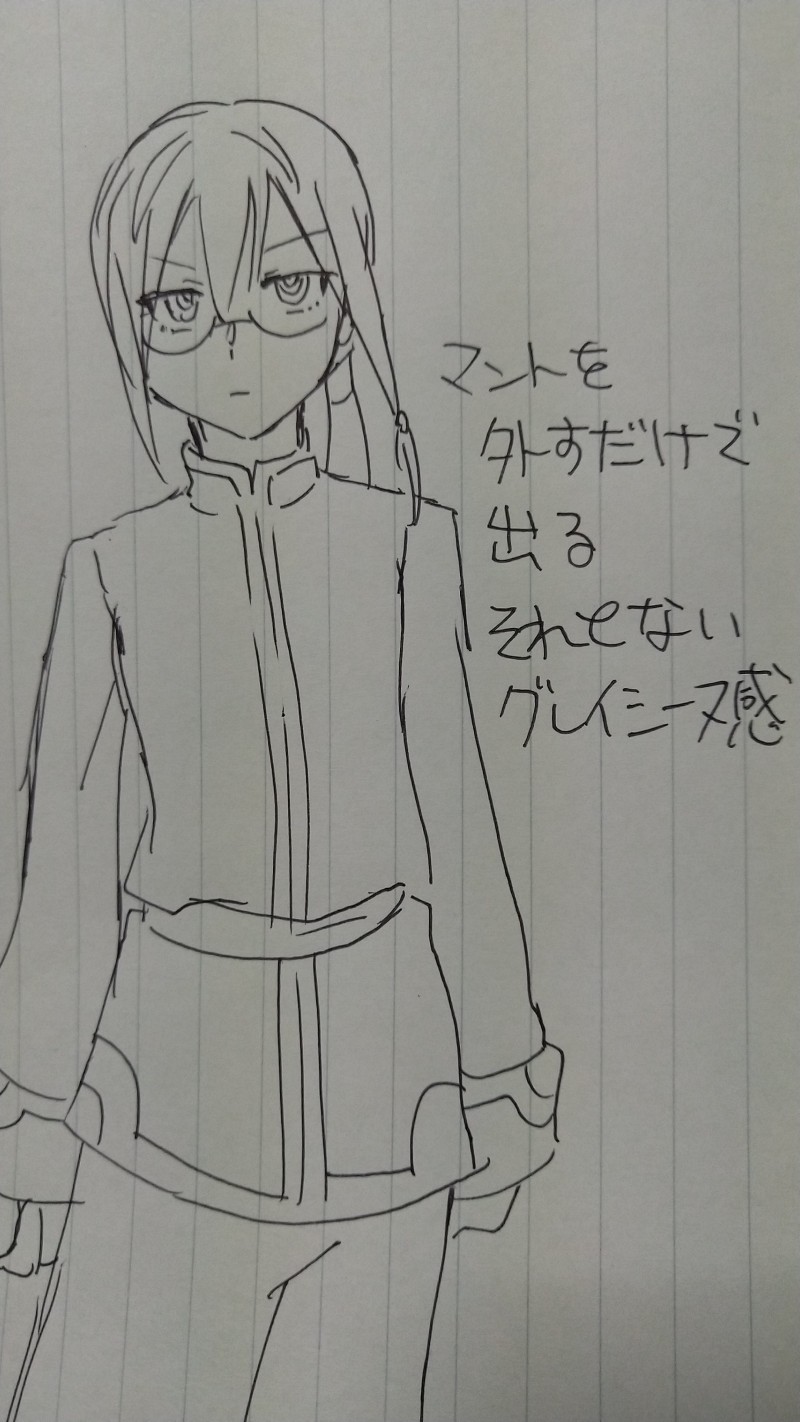 マントを
外すだけで
出る
それでない
グレイシーヌ感